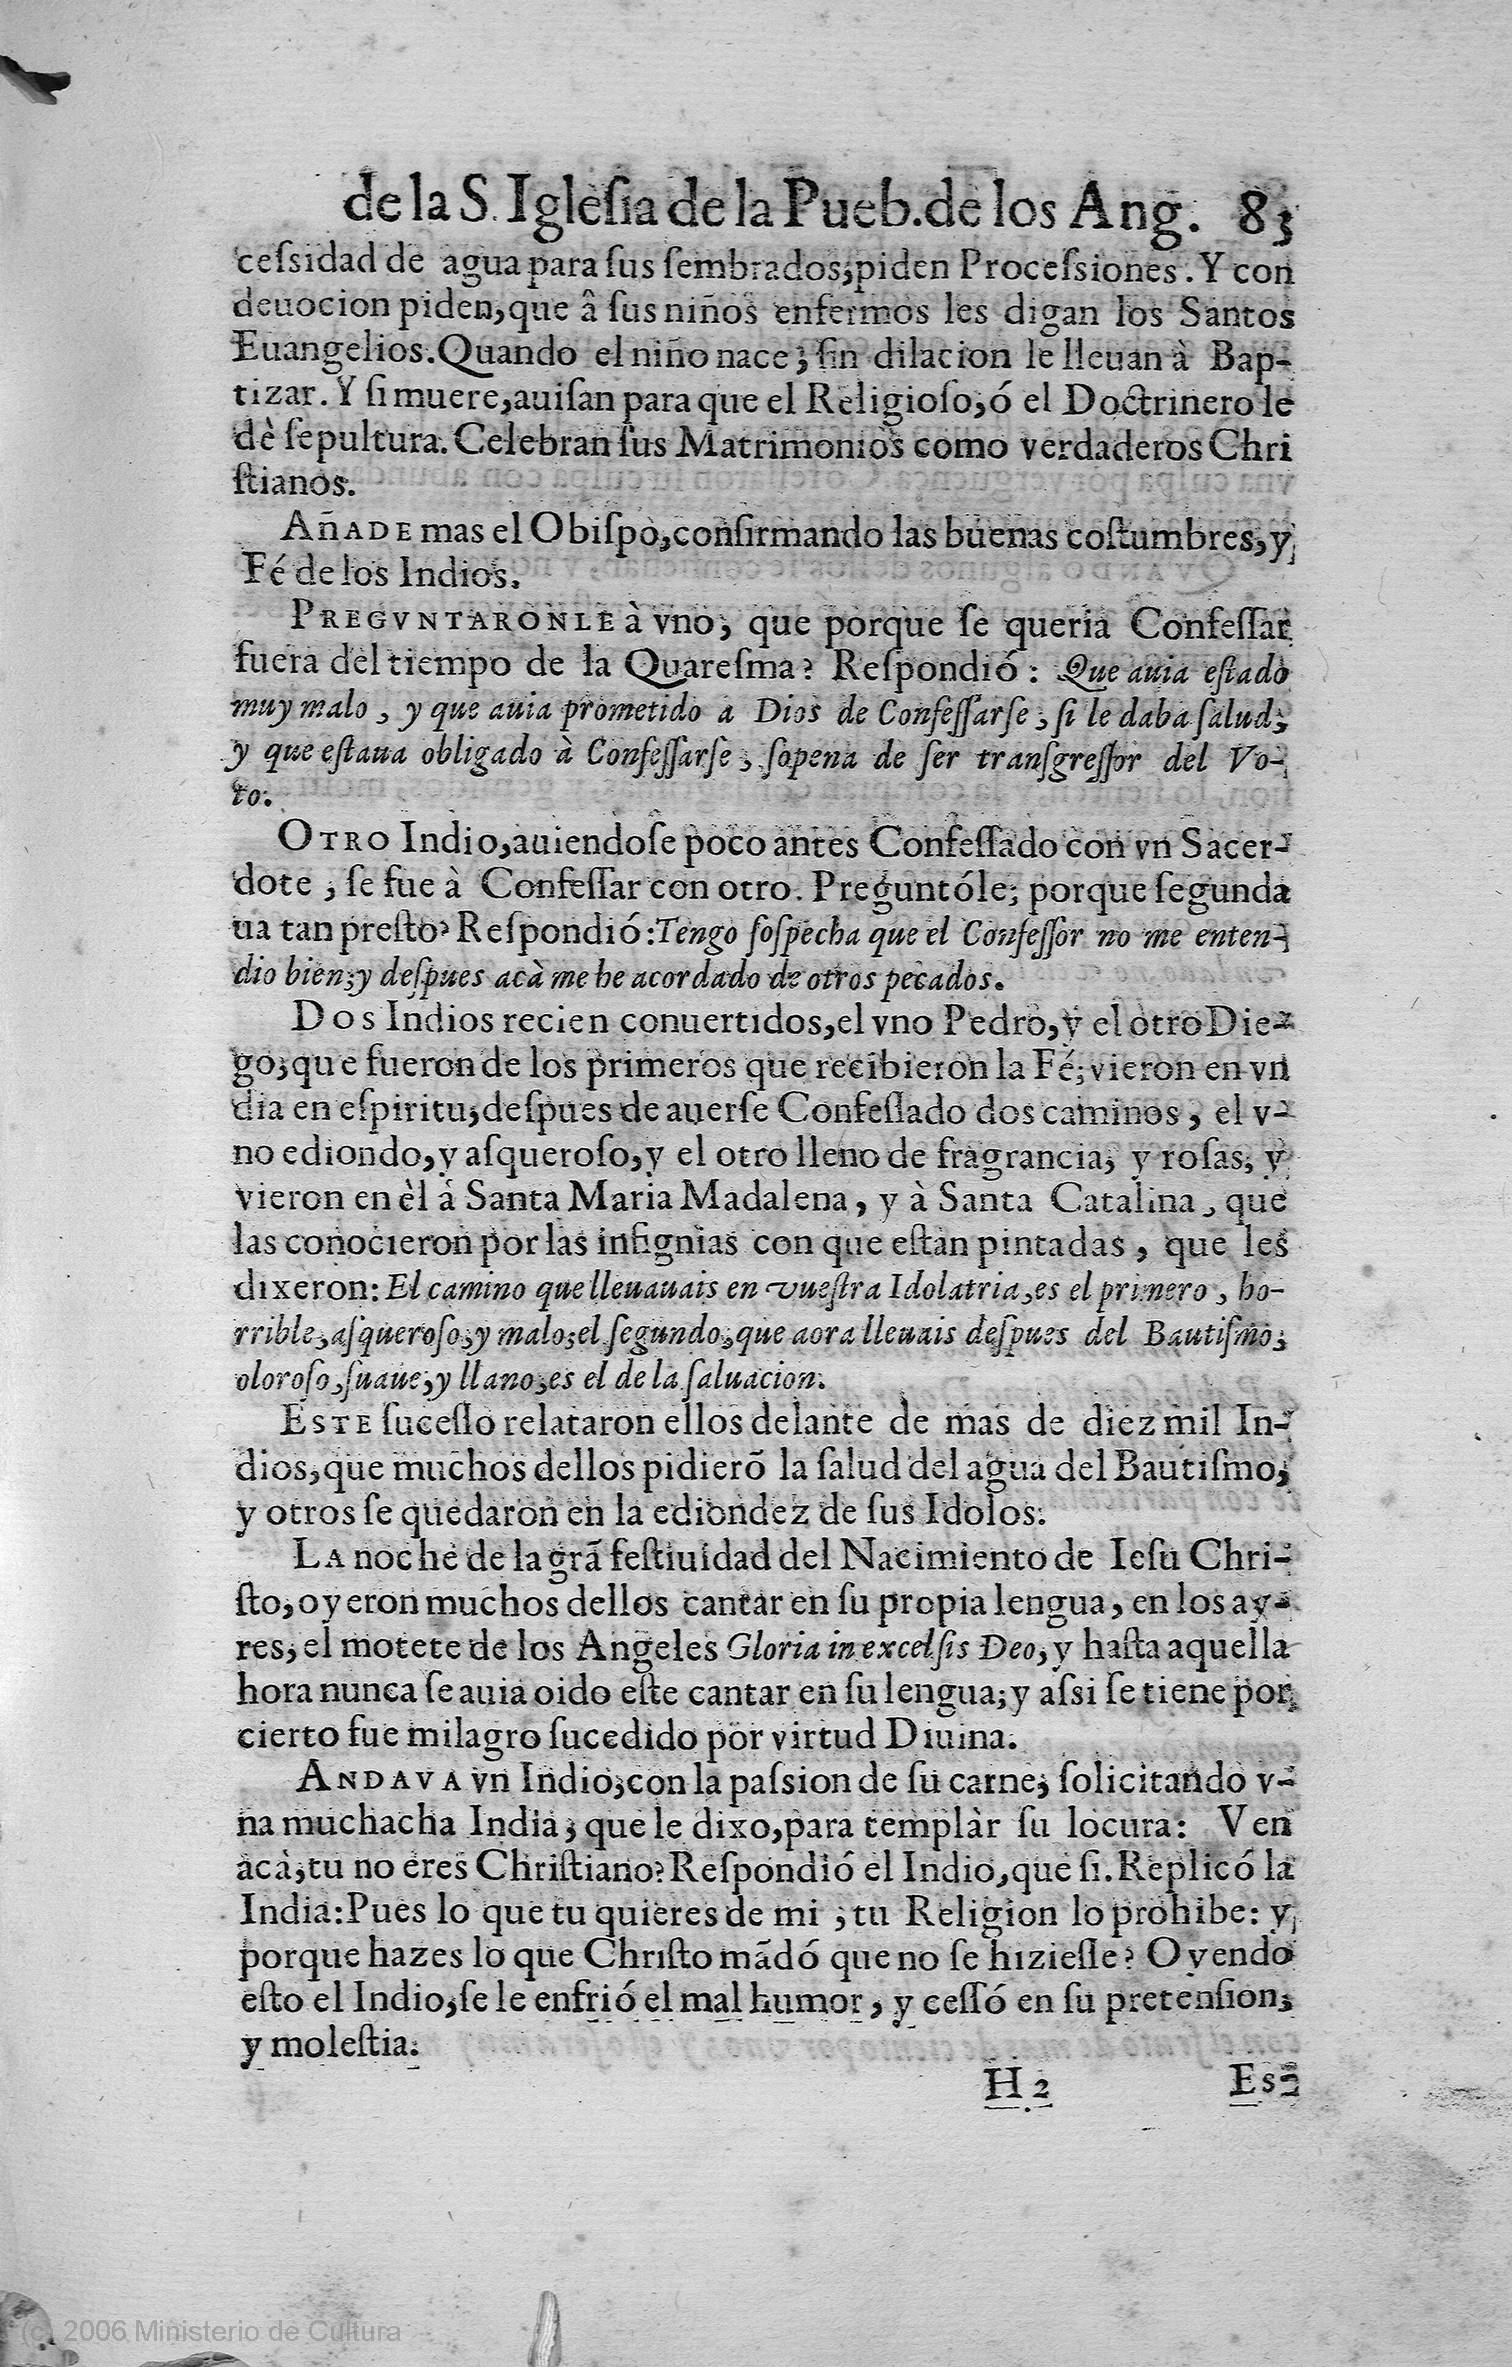 de la S. Iglesia de la Pueb. de los Ang. 83
cessidad de agua para sus sembrados; piden Processiones. Y con
deuocion piden, que â sus niños enfermos les digan los Santos
Euangelios. Quando el niño nace; sin dilacion le lleuan à Bap-
tizar. Y si muere, auisan para que el Religioso, ó el Doctrinero le
dè sepultura. Celebran sus Matrimonios como verdaderos Chri
stianos.
AñADE mas el Obispo, confirmando las buenas costumbres, y
Fé de los Indios.
PREGVNTARONLE à vno; que porque se queria Confessar
fuera del tiempo de la Quaresma? Respondió: Que auia estado
muy malo, y que auia prometido a Dios de Confessarse; si le daba salud;
y que estaua obligado à Confessarse, sopena de ser transgressor del Vo-
to.
OTRO Indio, auiendose poco antes Confessado con vn Sacer-
dote; se fue à Confessar con otro. Preguntóle; porque segunda
ua tan presto? Respondió: Tengo sospecha que el Confessor no me enten-
dio bien; y despues acà me he acordado de otros pecados.
DOS Indios recien conuertidos, el vno Pedro, y el otro Die-
go; que fueron de los primeros que recibieron la Fé; vieron en vn
dia en espiritu; despues de auerse Confessado dos caminos, el v-
no ediondo, y asqueroso, y el otro lleno de fragrancia; y rosas, y
vieron en èl à Santa Maria Madalena, y à Santa Catalina, que
las conocieron por las insignias con que estàn pintadas, que les
dixeron: El camino que lleuauais en vuestra Idolatria, es el primero, ho-
rrible, asqueroso, y malo; el segundo, que aora lleuais despues del Bautismo;
oloroso, suaue, y llano, es el de la saluacion.
ESTE sucesso relataron ellos delante de mas de diez mil In-
dios, que muchos dellos pidierõ la salud del agua del Bautismo;
y otros se quedaron en la ediondez de sus Idolos.
LA noche de la grã festiuidad del Nacimiento de Iesu Chri-
sto, oyeron muchos dellos cantar en su propia lengua, en los ay-
res, el motete de los Angeles Gloria in excelsis Deo, y hasta aquella
hora nunca se auia oido este cantar en su lengua; y assi se tiene por
cierto fue milagro sucedido por virtud Diuina.
ANDAVA vn Indio; con la passion de su carne; solicitando v-
na muchacha India; que le dixo, para templàr su locura: Ven
acà, tu no eres Christiano? Respondió el Indio, que si. Replicó la
India: Pues lo que tu quieres de mi; tu Religion lo prohibe: y
porque hazes lo que Christo mãdó que no se hiziesse? Oyendo
esto el Indio, se le enfrió el mal humor, y cessó en su pretension;
y molestia.
H 2 Es-
(c) 2006 Ministerio de Cultura